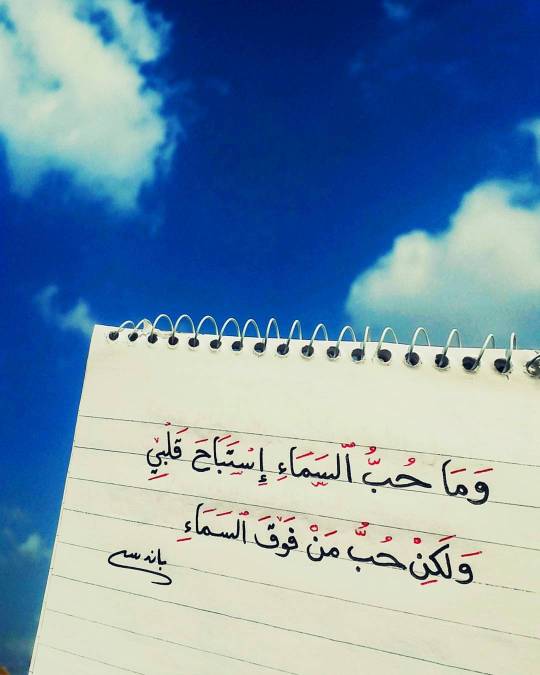 وَمَا حُبُّ ٱلسَّمَاءِ إِسْتَبَاحَ قَلْبِي
وَلَكِنْ حُبُّ مَنْ فَوْقَ ٱلسَمَاءِ